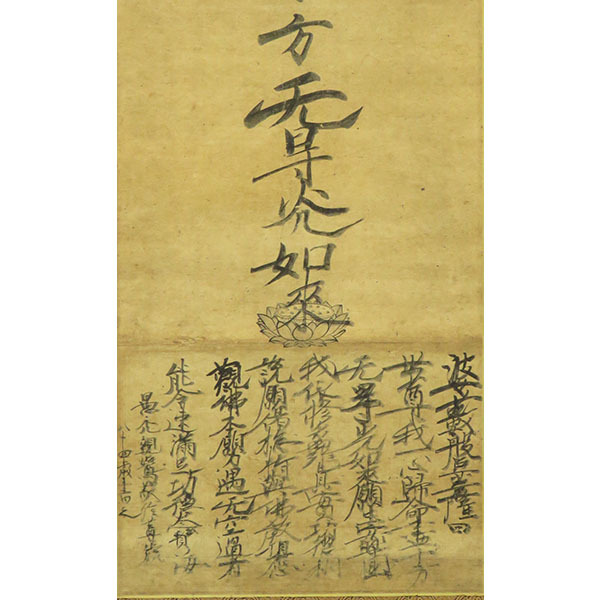 方无㝵光如來
婆藪般豆菩薩曰
世尊我一心歸命盡十方
无㝵光如來願生安樂國
我依修多羅真實功德相
說願偈總持與佛教相應
觀佛本願力遇无空過者
能令速滿足功德大寶海
愚禿親鸞敬信尊号
八十四歳書之